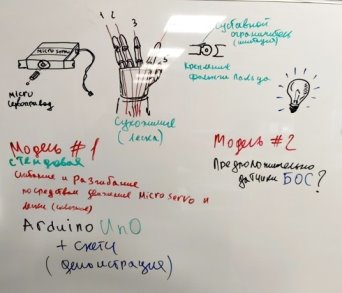 MICRO SERVO
MICRO
Сервопривод
1 2 3 4 5
Сухожилие
(леска)
Суставной
ограничитель
(имитация)
Крепление
фаланги пальца
Модель #1
стендовая
Сжатие и Разжибание
посредством движения Micro servo и
лески
Arduino UnO
+ скетч
(демонстрация)
Модель #2
Предположительно
датчики БОС?